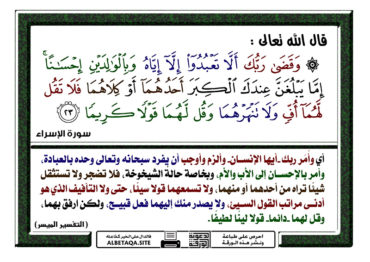 قال الله تعالى :
۞ وَقَضَىٰ رَبُّكَ أَلَّا تَعْبُدُوٓا۟ إِلَّآ إِيَّاهُ وَبِٱلْوَٰلِدَيْنِ إِحْسَـٰنًا ۚ
إِمَّا يَبْلُغَنَّ عِندَكَ ٱلْكِبَرَ أَحَدُهُمَآ أَوْ كِلَاهُمَا فَلَا تَقُل
لَّهُمَآ أُفٍّ وَلَا تَنْهَرْهُمَا وَقُل لَّهُمَا قَوْلًا كَرِيمًا ٢٣
سورة الإسراء
أي وأمر ربك -أيها الإنسان- وألزم وأوجب أن يفرد سبحانه وتعالى وحده بالعبادة،
وأمر بالإحسان إلى الأب والأم، وبخاصة حالة الشيخوخة، فلا تضجر ولا تستثقل
شيئا تراه من أحدهما أو منهما، ولا تسمعهما قولا سيئا، حتى ولا التأفيف الذي هو
أدنى مراتب القول السيئ، ولا يصدر منك إليهما فعل قبيح، ولكن ارفق بهما،
وقل لهما -دائما- قولا لينا لطيفا.
( التفسير الميسر )
احرص على طباعة
ونشر هذه الورقة
الدال على الخير كفاعله
ALBETAQA.SITE